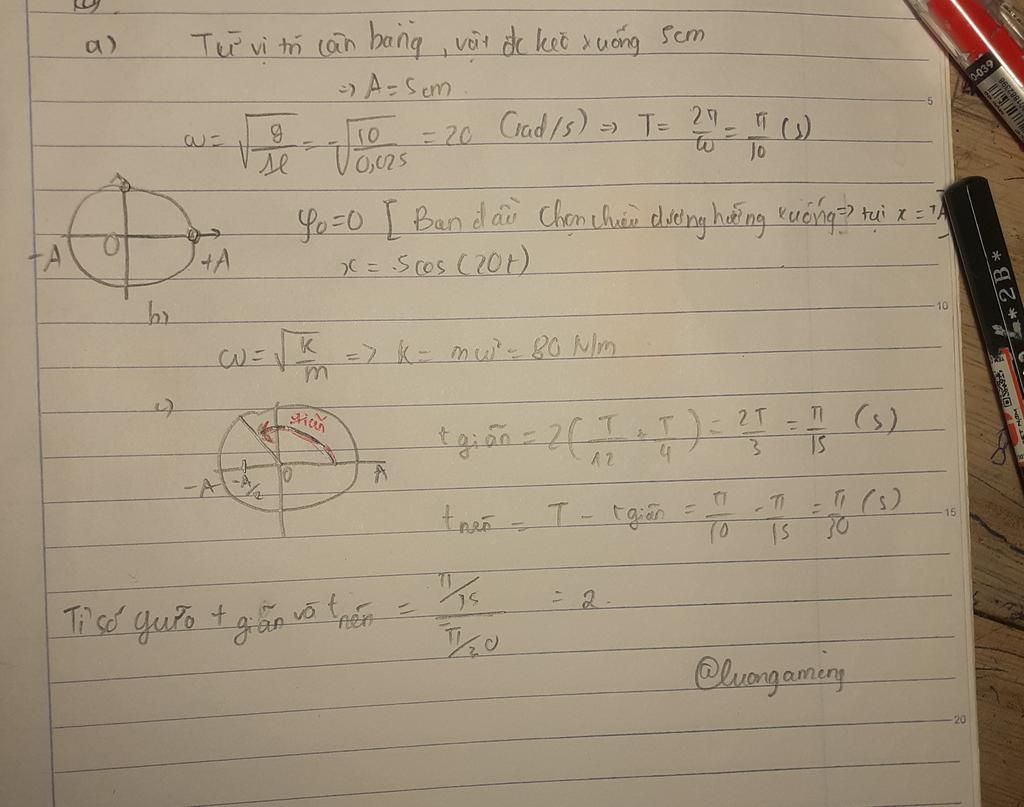 a) Từ vị trí cân bằng, vật đc kéo xuống 5cm
=> A = 5cm.
ω = √(g/Δl) = √(10/0,025) = 20 (rad/s) => T = 2π/ω = π/10 (s)
φ₀=0 [ Ban đầu chọn chiều dương hướng xuống => tại x = +A
-A O +A
x = 5cos(20t)
b)
ω = √(k/m) => k = mω² = 80 N/m
c)
giãn
-A -A/2 O A
t giãn = 2(T/12 + T/4) = 2T/3 = π/15 (s)
t nén = T - t giãn = π/10 - π/15 = π/30 (s)
Tỉ số giữa t giãn và t nén = (π/15)/(π/30) = 2.
@luongaming
0-039
2B*
5
10
15
20